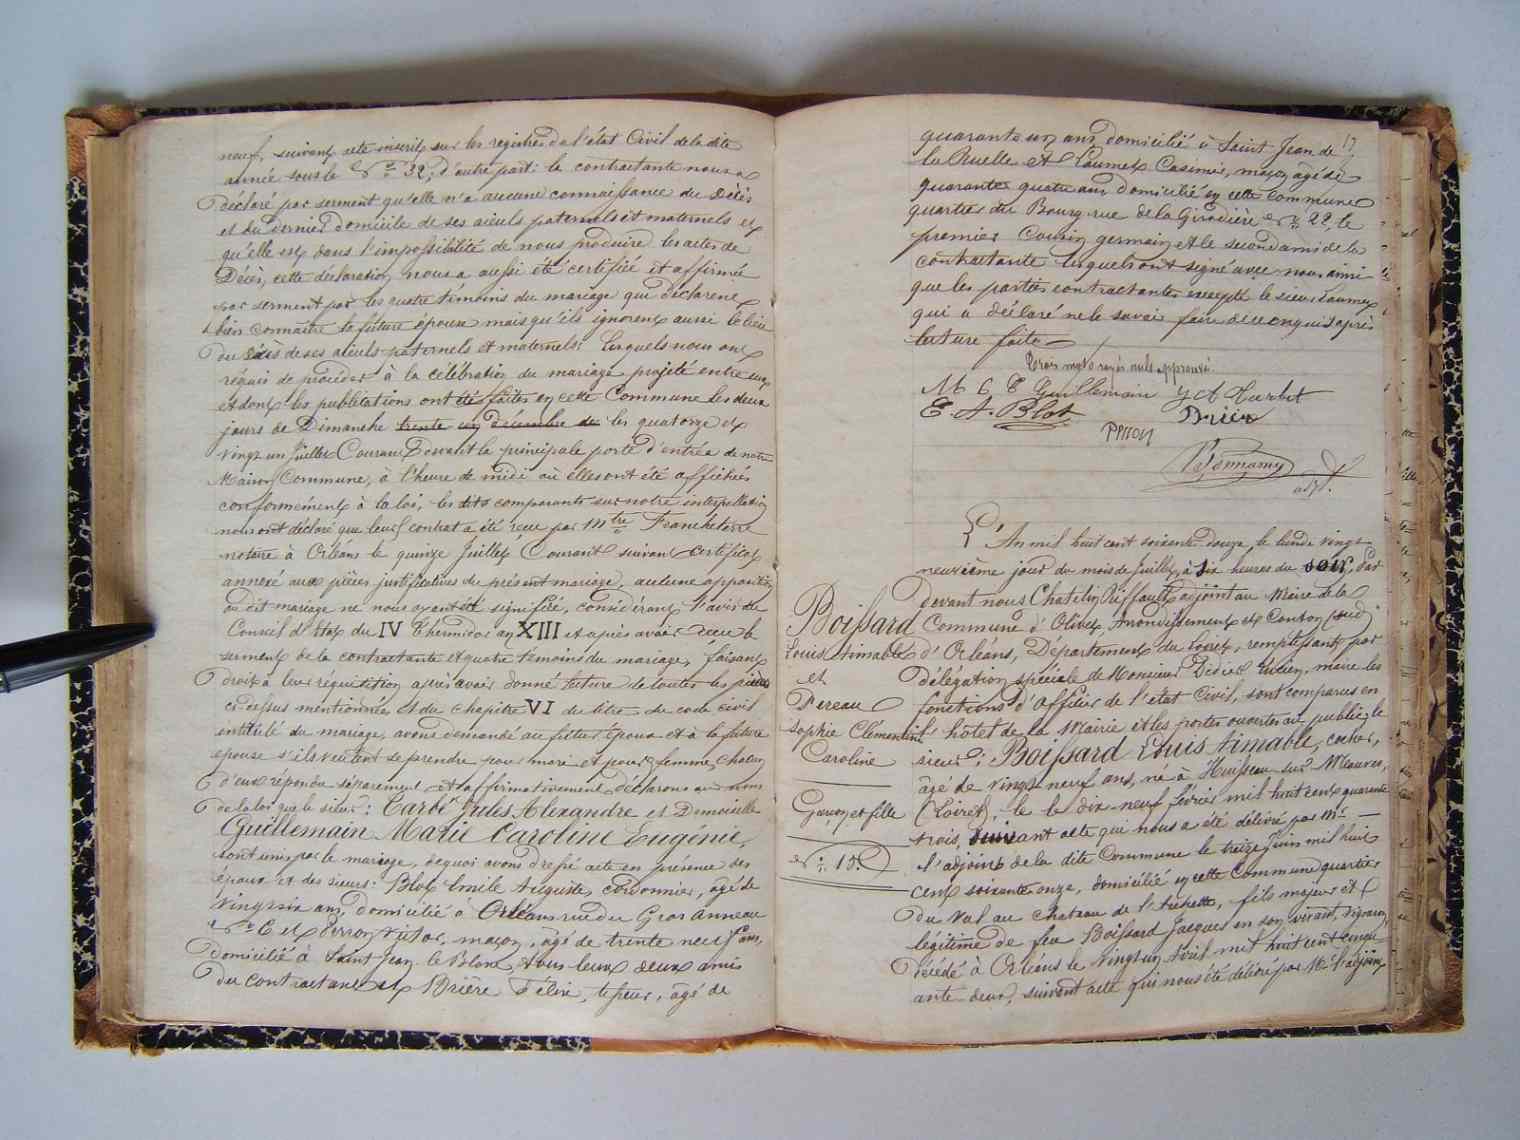 neuf, suivant acte inscrit sur les registres de l'état Civil de la dite
année sous le No 32; d'autre part: la contractante nous a
déclaré par serment qu'elle n'a aucune connaissance du Décès
et du dernier domicile de ses aïeuls paternels et maternels et
qu'elle est dans l'impossibilité de nous produire les actes de
Décès, cette déclaration nous a aussi été certifiée et affirmée
par serment par les quatre témoins du mariage qui déclarent
bien connaitre la future épouse mais qu'ils ignorent aussi le lieu
du décès de ses aïeuls paternels et maternels: Lesquels nous ont
réquis de procéder à la célébration du mariage projeté entre eux
et dont les publications ont été faites en cette Commune les deux
jours de Dimanche trente un décembre de les quatorze et
vingt un Juillet Courant Devant la principale porte d'entrée de notre
Maison Commune, à l'heure de midi où elles ont été affichées
conformément à la loi, les dits comparants sur notre interpellation
nous ont déclaré que leur contrat a été reçu par Mtre Francheterre
notaire à Orléans le quinze Juillet Courant suivant certificat
annexé aux pièces justificatives du présent mariage, aucune opposition
au dit mariage ne nous ayant été signifiée, considérant l'avis du
Conseil d'Etat du IV Thermidor an XIII et après avoir reçu le
serment de la contractante et quatre temoins du mariage, faisant
droit à leur réquisition après avoir donné lecture de toutes les pièces
ci dessus mentionnées et du chapitre VI du titre du code civil
intitulé du mariage, avons demandé au futur époux et à la future
epouse s'ils veulent se prendre pour mari et pour femme, chacun
d'eux répondu séparement et affirmativement Déclarons au nom
de la loi que le sieur: Jules Alexandre et Demoiselle
Guillemain Marie Caroline Eugénie,
sont unis par le mariage, dequoi avons dressé acte en présence des
époux et des sieurs: Blot Emile Auguste, cordonnier, âgé de
vingt six ans, domicilié à Orléans rue du Gros Anneau
No 6 et Perron Victor, maçon, âgé de trente neuf ans,
domicilié à Saint Jean le Blanc, tous leux deux amis
du contractant et Brière Félix, âgé de
17
quarante un ans domicilié à Saint Jean de
la Ruelle et Paumet Casimir, maçon âgé de
quarante quatre ans domicilié en cette commune
quartier du Bourg rue de la Girodière No 22, le
premier Cousin germain et le second ami de la
contractante lesquels ont signé avec nous ainsi
que les parties contractantes excepté le sieur Paumet
qui a déclaré ne le savoir faire de ce enquis après
lecture faite
Trois mots rayés nuls approuvés
M C E Guillemain
E. A. Blot Brière
Perron
adjt.
L'An mil huit cent soixante-douze, le lundi vingt
neuvième jour du mois de Juillet, à six heures du soir, Par
devant nous Chatelin Riffault adjoint au Maire de la
Commune d'Olivet, Arrondissement et Canton (sud)
d'Orléans, Département du Loiret, remplissant par
délégation spéciale de Monsieur Didier Lucien, maire les
fonctions d'Officier de l'état Civil, sont comparus en
l'hôtel de la Mairie et les portes ouvertes au public, le
sieur: Boissard Louis Aimable, cocher,
âgé de vingt neuf ans, né à Huisseau sur Mauves,
(Loiret), le le dix neuf février mil huit cent quarante
trois, suivant acte qui nous a été délivré par Mr
l'adjoint de la dite Commune le treize Juin mil huit
cent soixante onze, domicilié en cette Commune quartier
du Val au chateau de l'Archette, fils majeur et
légitime de feu Boissard Jacques en son vivant, vigneron,
Décédé à Orléans le vingt un Avril mil huit cent cinqu-
ante-deux, suivant acte qui nous été délivré par Mr l'adjoint
Boissard
Louis Aimable
et
Pereau
Sophie Clémentine
Caroline
Garçon et fille
No: 15.